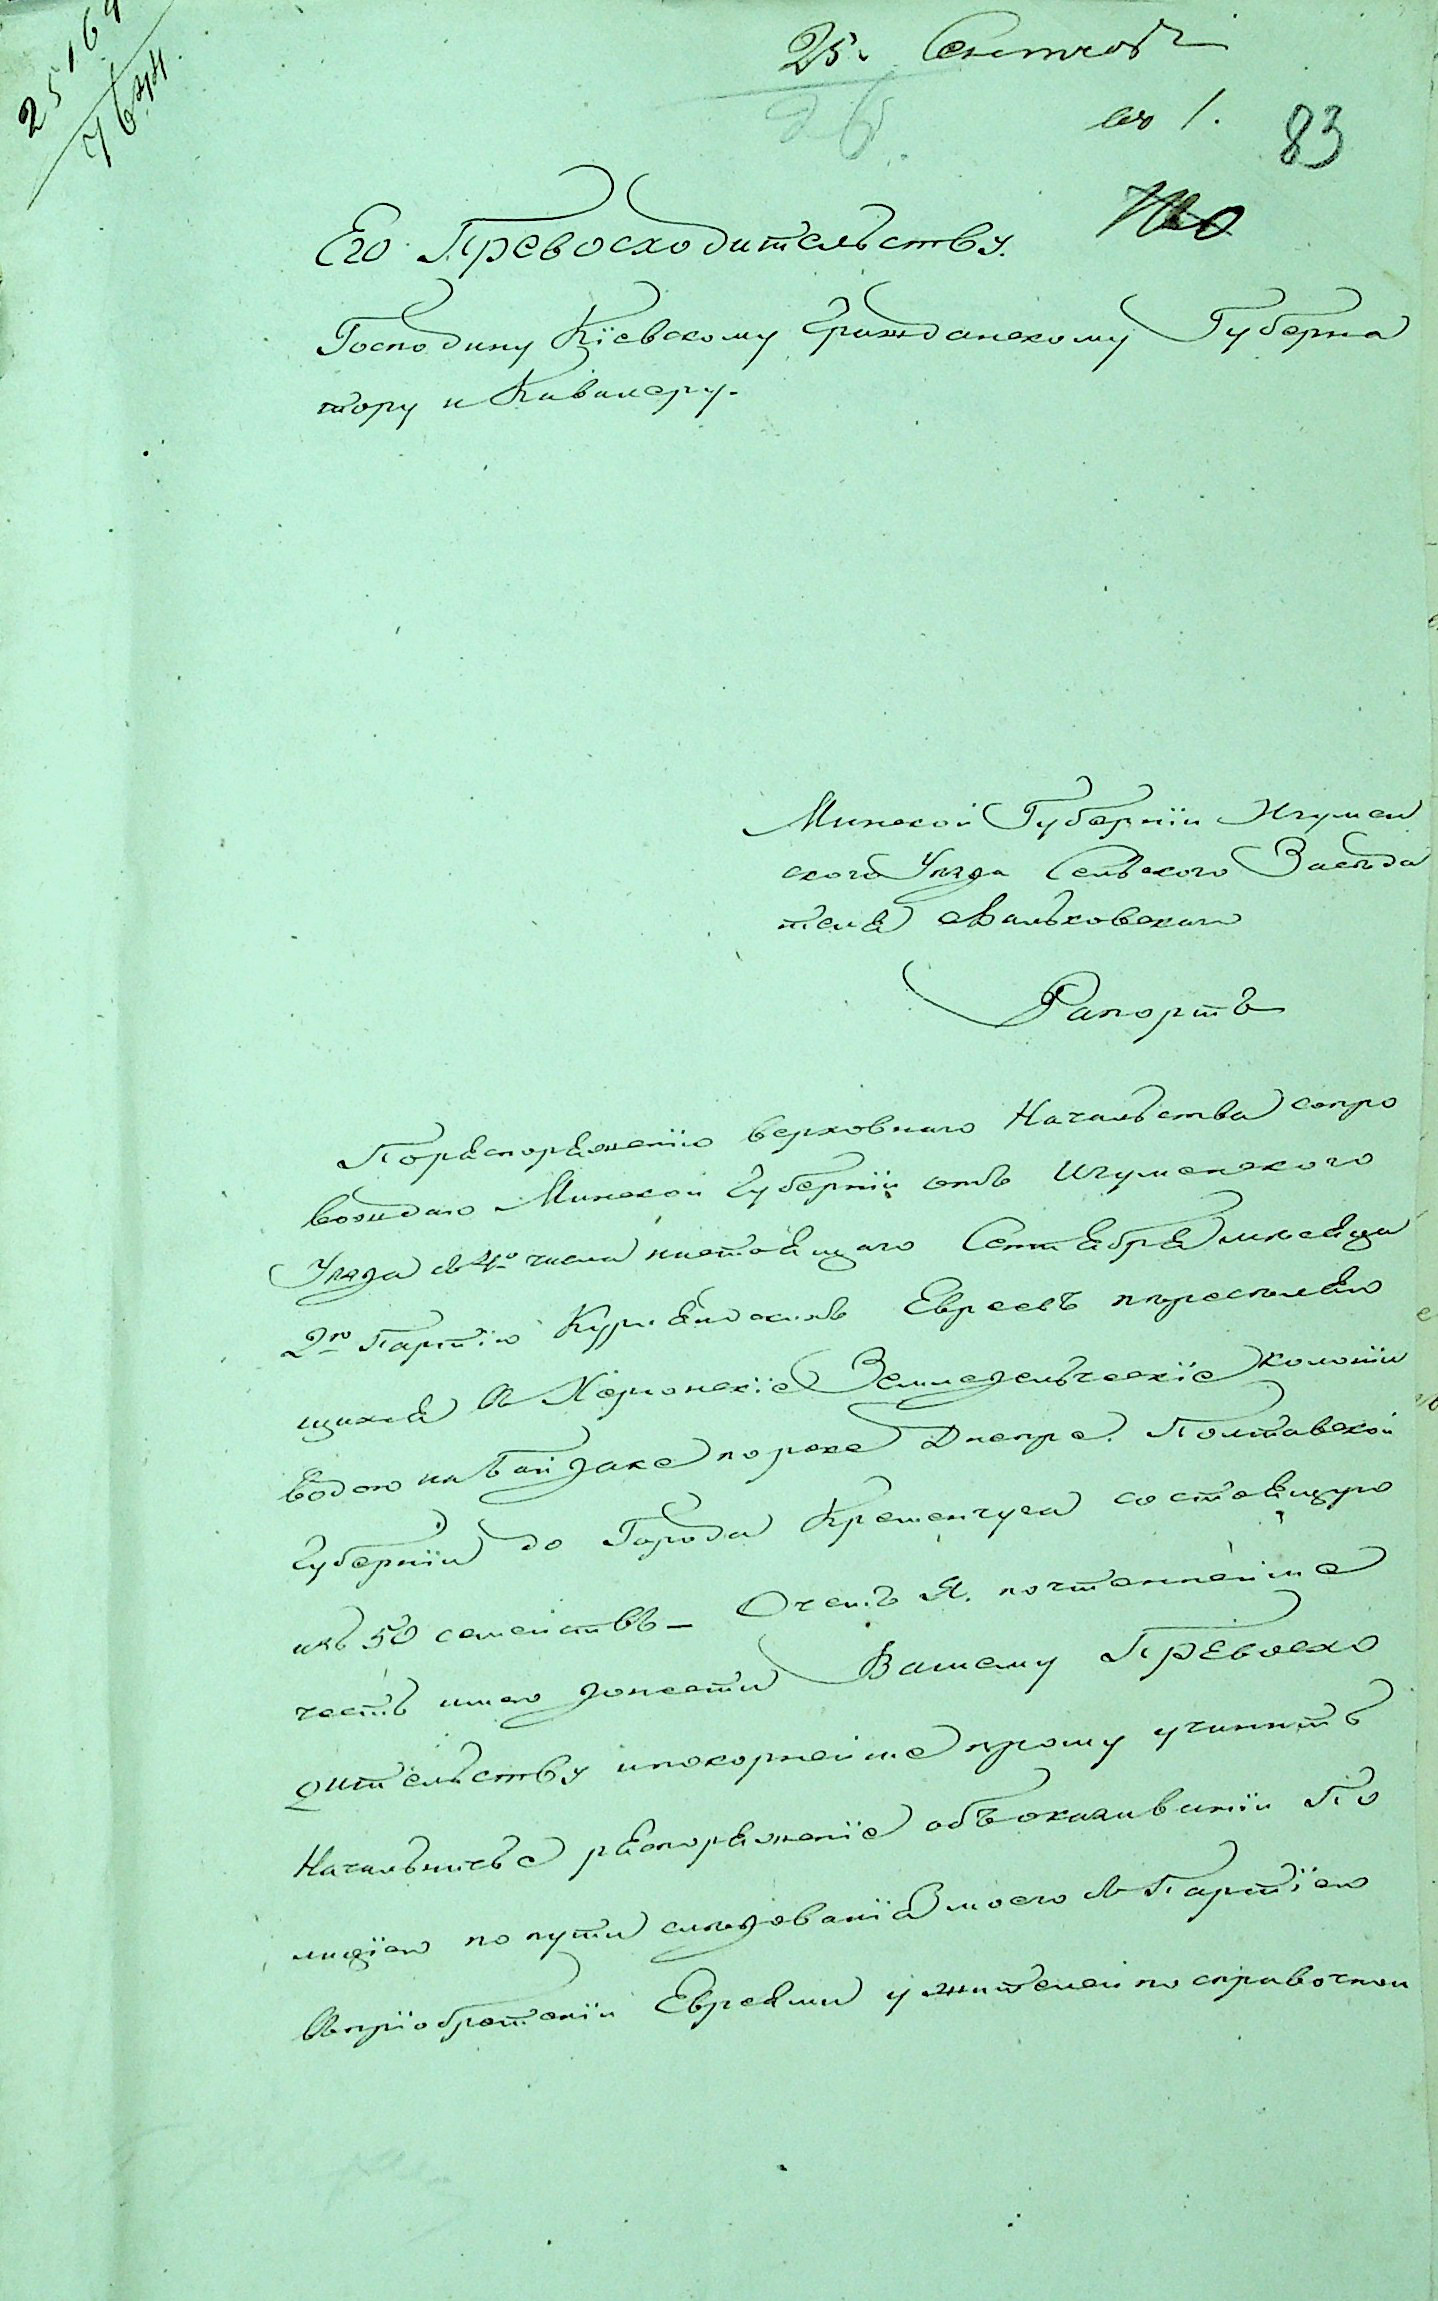 25169
7644
25. Сентяб
26.
83
Его Превосходительству.
Господину Кіевскому Гражданскому Губерна
тору и Кавалеру.
Минской Губерніи Игумен
ского Уезда Сельского Заседа
теля Вальковскаго
Рапортъ
По распоряженію верховнаго Начальства сопро
вождаю Минской Губерніи отъ Игуменского
Уезда съ 4го числа настоящаго Сентября месяца
2ю Партію Курляндскихъ Евреевъ пересиляю
щихся въ Херсонскіе Земледельческіе колоніи
водою на Байдаке по реке Днепре. Полтавской
Губерніи до Города Кременчуга состоящую
изъ 50 семействъ – О чемъ Я. почтеннейше
честь имею донести Вашему Превосхо
дительству и покорнейше прошу учинить
Начальничье распоряженіе объ оказываніи По
лиціею по пути следованія моего съ Партіею
въ пріобретеніи Евреями у жителей по справочной